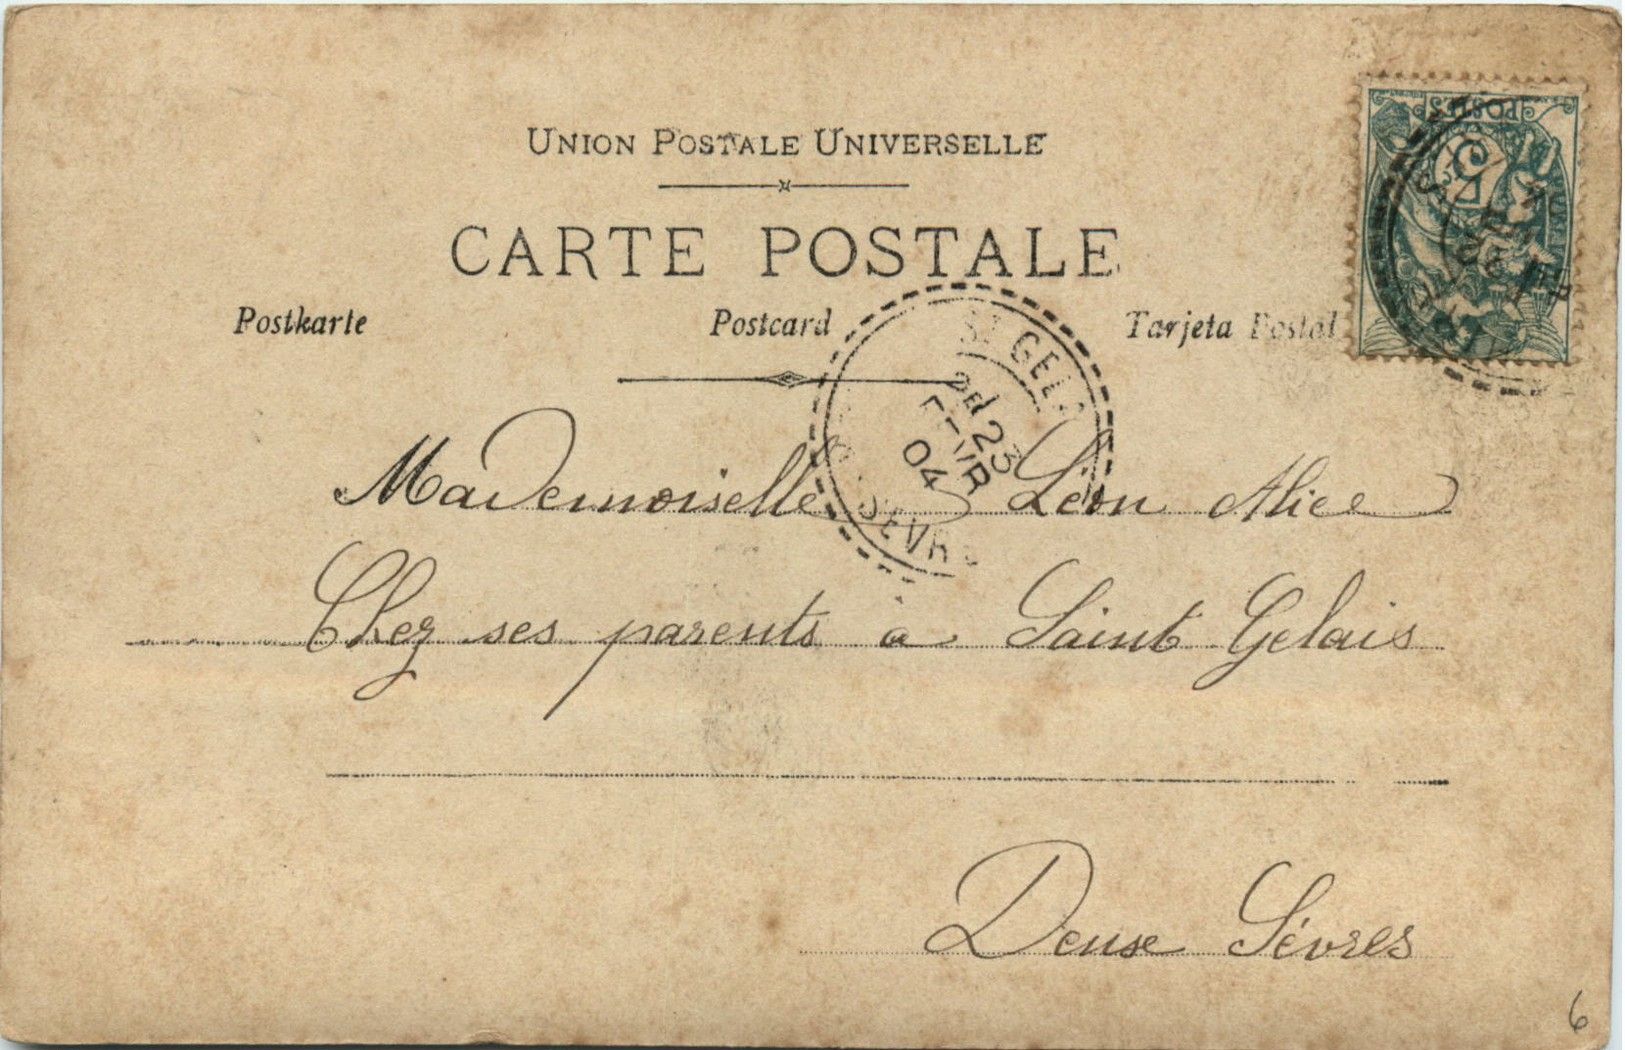 UNION POSTALE UNIVERSELLE
CARTE POSTALE
Postkarte Postcard Tarjeta Postal
POSTES
5
ST GELA
2E
23
FEVR
04
SEVR
Mademoiselle Léon Alice
Chez ses parents à Saint Gelais
Deux Sèvres
6